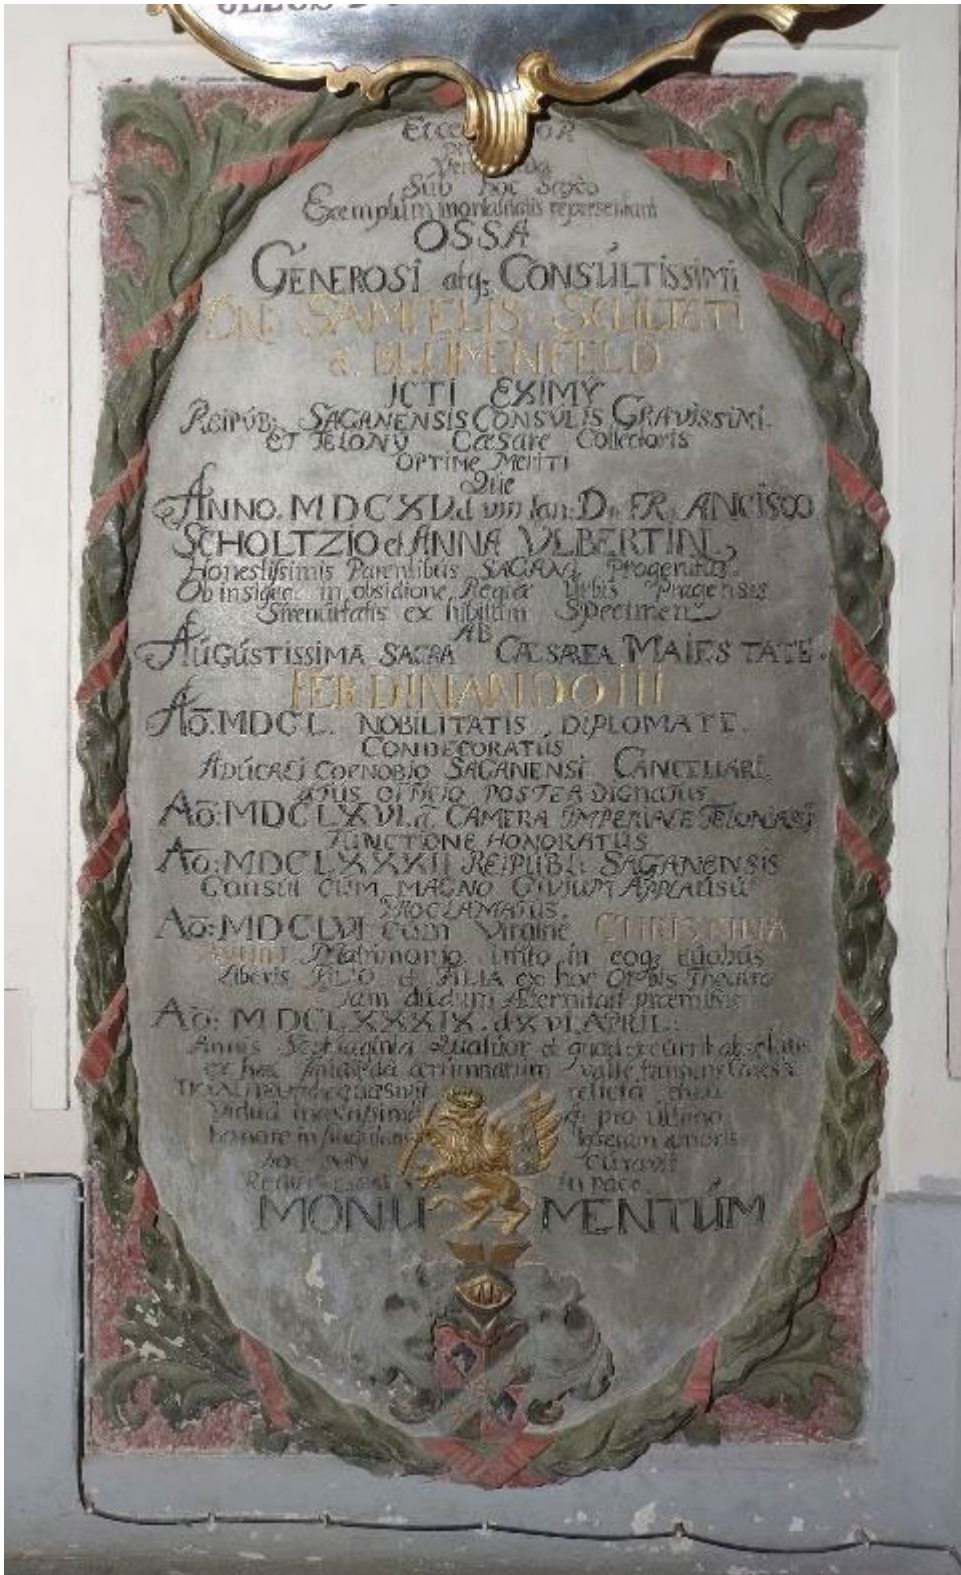 Sub hoc Saxo
Exemplum mortalitatis representant
OSSA
GENEROSI atq; CONSULTISSIMI
DN: SAMUELIS SCHULTETI
a. BLUMENFELD
ICTI EXIMY
REIPUB: SAGANENSIS CONSULIS GRAVISSIMI.
ET TELONY Cæsare Collectoris
OPTIME MERITI
Qui
ANNO. MDCXV.d VIII Ian: D. FRANCISCO
SCHOLTZIO et ANNA ULBERTIN,
Honestissimis Parentibus SAGANI Progenitus.
Ob insigne in obsidione Regiæ Urbis Pragensis
Strenuitatis exhibitum Specimen
AB
AUGUSTISSIMA SACRA CÆSAREA MAIESTATE.
FERDINANDO III
Ao. MDCL. NOBILITATIS DIPLOMATE.
CONDECORATUS
COENOBIO SAGANENSI CANCELLARI
OFFICIO POSTEA DIGNATUS
Ao: MDCLXVI. a. CAMERA IMPERIALE TELONIARY
FUNCTIONE HONORATUS
Ao: MDCLXXXII REIPUBL: SAGANENSIS
Consul CUM MAGNO CIVIUM APPLAUSU
PROCLAMATUS.
Ao: MDCLVI cum Virgine CHRISTINA
Matrimonio inito in eoq; duobus
Liberis FILIO et FILIA ex hoc Orbis Theatro
Jam dudum Æternitati præmissis
Ao: MDCLXXXIX. d XVI. APRIL:
Annis Septuaginta Quatuor et quod excurrit
ex hac ærumnarum valle
relicta
Vidua mæstissima et pro ultimo
honore in amoris
curavit
in pace
MONUMENTUM